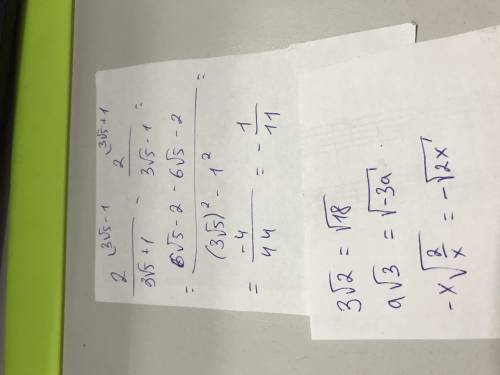 2^(3√5-1 2^(3√5+1
2/(3√5+1) = 2/(3√5-1) =
= (6√5-2-6√5-2)/((3√5)²-1²) =
= -4/44 = -1/11
3√2 = √18
a√3 = √-3a
-x√(2/x) = -√2x